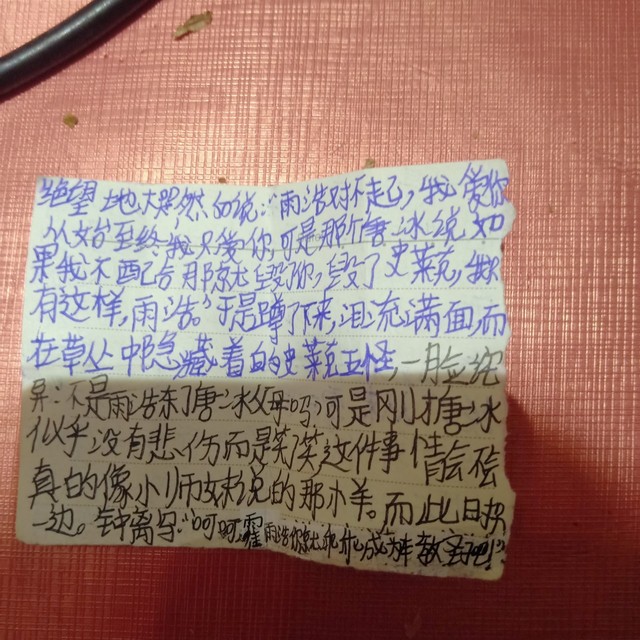 绝望地大哭然后说:“雨浩对不起,我爱你
从始至终我只爱你,可是那个唐冰说如
果我不配合那就毁了你,毁了史莱克,我
有这样,雨浩。”于是蹲了下来,泪流满面,而
在草丛中隐藏着的史莱克五怪,一脸诧
异:不是雨浩杀了唐冰父母吗?可是刚才唐冰
似乎没有悲伤而是笑了笑这件事情会不会
真的像小师妹说的那个样。而此时另
一边。钟离乌:“呵呵霍雨浩你就乖乖成为